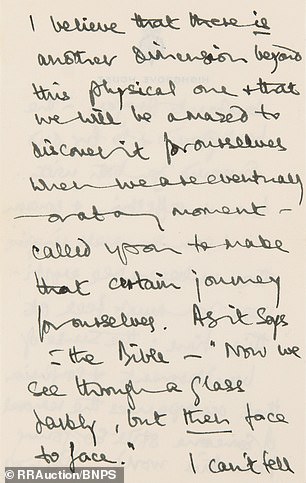 I believe that there is
another dimension beyond
this physical one & that
we will be amazed to
discover it for ourselves
when we are eventually
– or at any moment –
called upon to make
that certain journey
for ourselves. As it says
in the Bible – "Now we
see through a glass
darkly, but then face
to face." I can't tell
© RRAuction/BNPS